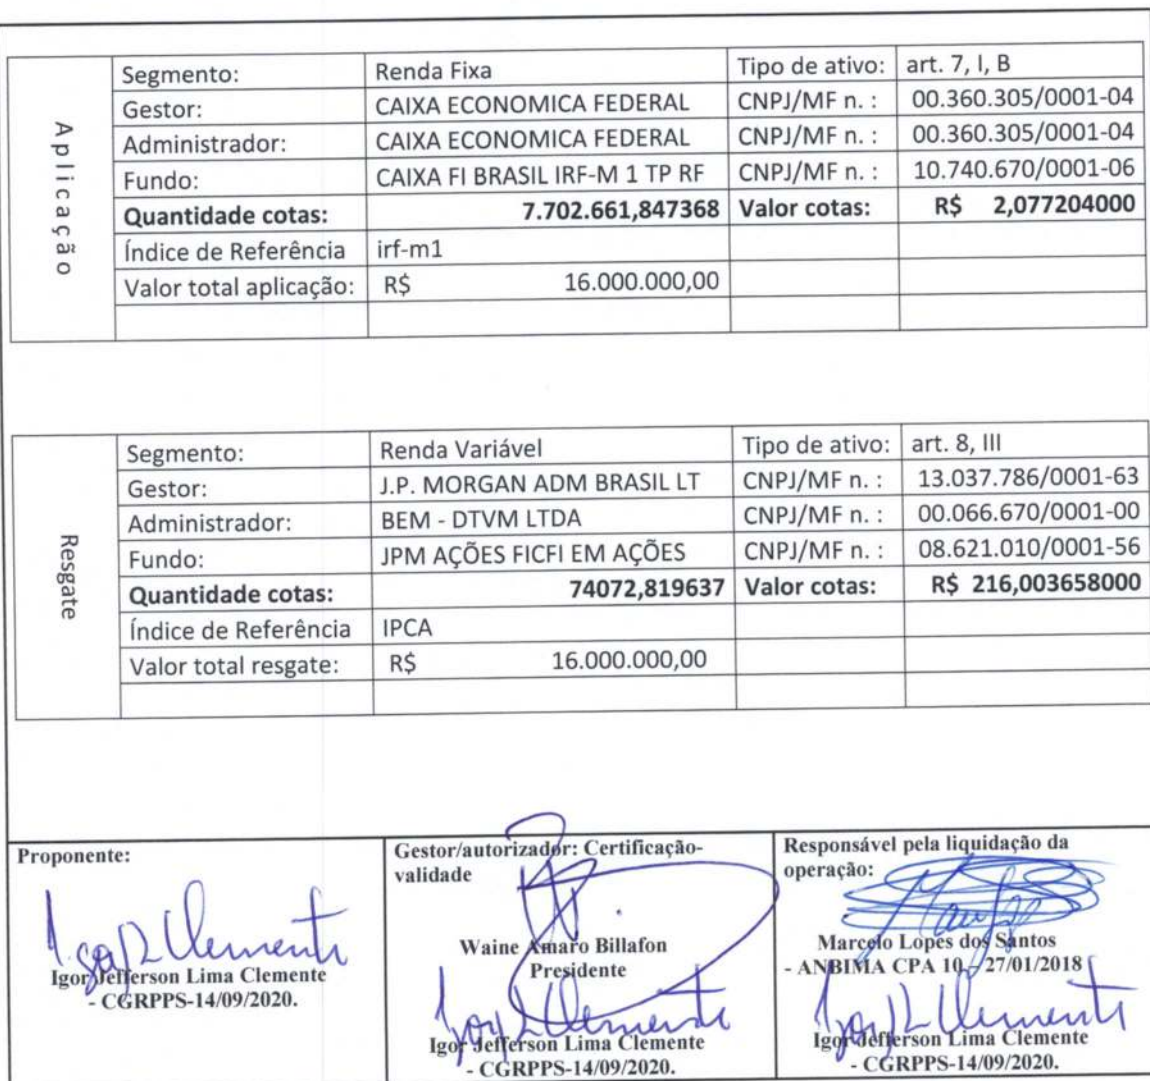 Aplicação
Segmento: Renda Fixa Tipo de ativo: art. 7, I, B
Gestor: CAIXA ECONOMICA FEDERAL CNPJ/MF n. : 00.360.305/0001-04
Administrador: CAIXA ECONOMICA FEDERAL CNPJ/MF n. : 00.360.305/0001-04
Fundo: CAIXA FI BRASIL IRF-M 1 TP RF CNPJ/MF n. : 10.740.670/0001-06
Quantidade cotas: 7.702.661,847368 Valor cotas: R$ 2,077204000
Índice de Referência irf-m1
Valor total aplicação: R$ 16.000.000,00
Resgate
Segmento: Renda Variável Tipo de ativo: art. 8, III
Gestor: J.P. MORGAN ADM BRASIL LT CNPJ/MF n. : 13.037.786/0001-63
Administrador: BEM - DTVM LTDA CNPJ/MF n. : 00.066.670/0001-00
Fundo: JPM AÇÕES FICFI EM AÇÕES CNPJ/MF n. : 08.621.010/0001-56
Quantidade cotas: 74072,819637 Valor cotas: R$ 216,003658000
Índice de Referência IPCA
Valor total resgate: R$ 16.000.000,00
Proponente:
Igor Jefferson Lima Clemente
- CGRPPS-14/09/2020.
Gestor/autorizador: Certificação-
validade
Waine Amaro Billafon
Presidente
Igor Jefferson Lima Clemente
- CGRPPS-14/09/2020.
Responsável pela liquidação da
operação:
Marcelo Lopes dos Santos
- ANBIMA CPA 10 - 27/01/2018
Igor Jefferson Lima Clemente
- CGRPPS-14/09/2020.